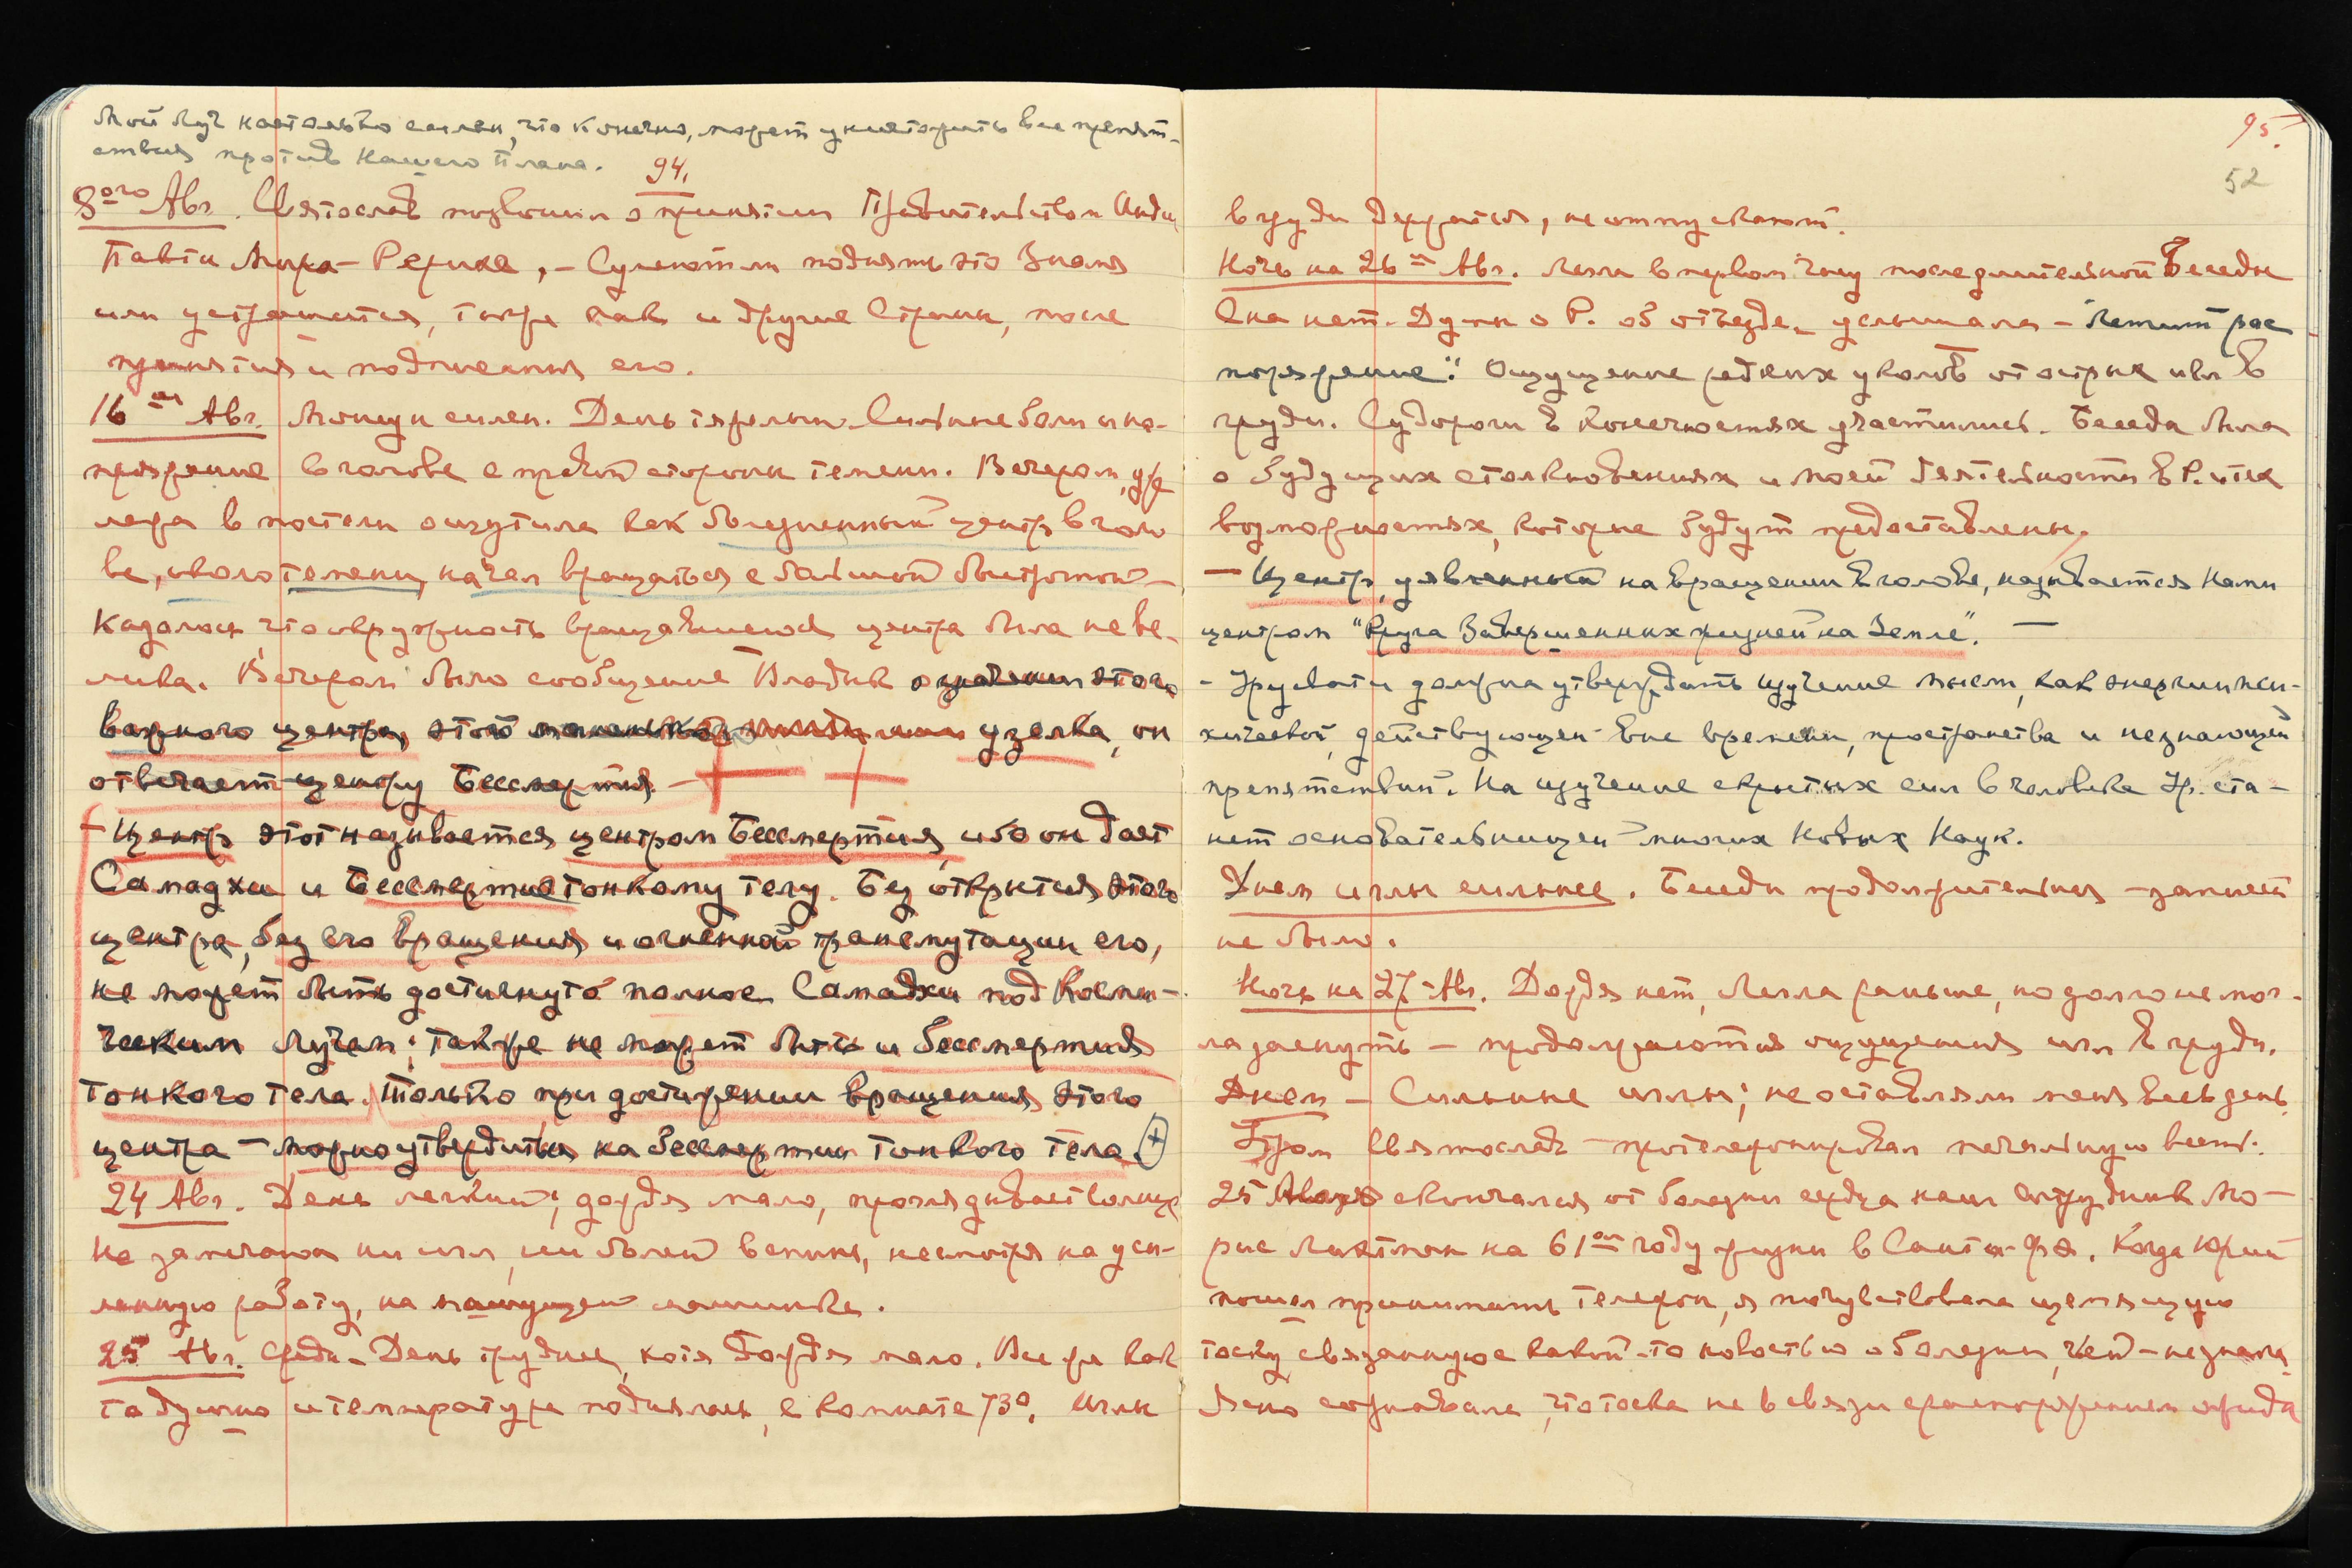 Мой Луч настолько силен, что Конечно, может уничтожить все препят-
ствия против Нашего Плана.
94.
8ого Авг. Святослав позвонил о принятии Правительством Инди
Пакта Мира – Рериха, – Сумеют ли поднять это Знамя
или устрашатся, также как и другие Страны, после
принятия и подписания его.
16ое Авг. Монсун силен. День тяжелый. Сильные боли и на-
пряжение в голове с правой стороны темени. Вечером, уже
лежа в постели ощутила как болезненный центр в голо
ве, около темени, начал вращаться с большой быстротой –
Казалось, что окружность вращавшегося центра была неве-
лика. Вечером было сообщение Владык о значении этого
важного центра, этого узелка, он
отвечает центру Бессмертия –
– Центр этот называется центром Бессмертия, ибо он дает
Самадхи и Бессмертие тонкому телу. Без открытия этого
центра, без его вращения и огненной трансмутации его,
не может быть достигнуто полное Самадхи под Косми-
ческим Лучем; также не может быть и бессмертия
тонкого тела. Только при достижении вращения этого
центра – можно утвердиться на бессмертии тонкого тела. +
24 Авг. День легкий; дождя мало, проглядывает солнце
Не замечаю ни игл, ни болей в спине, несмотря на уси-
ленную работу, на пишущей машинке.
25 Авг. Среда – День трудный, хотя дождя мало. Все же как
то душно и температура поднялась, в комнате 73°. Иглы
95.
52
в груди держатся, не отпускают.
Ночь на 26ое Авг. Легла в первом часу после длительной Беседы
Сна нет. Думы о Р. об отъезде – услышала – "Летит рас
поряжение". Ощущение редких уколов от острых игл в
груди. Судороги в конечностях участились. Беседа была
о будущих столкновениях и моей деятельности в Р. и тех
возможностях, которые будут предоставлены.
– Центр, уявленный на вращении в голове, называется Нами
центром "Круга Завершенных жизней на Земле". –
– Урусвати должна утвердить изучение мысли, как энергии пси-
хической, действующей вне времени, пространства и незнающей
препятствий. На изучение скрытых сил в человеке Ур. ста-
нет основательницей многих Новых Наук.
Днем иглы сильнее. Беседы продолжительные – записей
не было.
Ночь на 27 Авг. Дождя нет, Легла раньше, но долго не мог-
ла заснуть – продолжаются ощущения игл в груди.
Днем – Сильные иглы; не оставляли меня весь день
Утром Святослав – протелефонировал печальную весть:
25 Авг. скончался от болезни сердца наш сотрудник Мо-
рис Лихтман на 61ом году жизни в Санта-Фэ. Когда Юрий
пошел принимать телефон, я почувствовала щемящую
тоску, связанную с какой-то новостью о болезни, чьей – не знала,
Ясно сознавала, что тоска не в связи с распоряжением отъезда